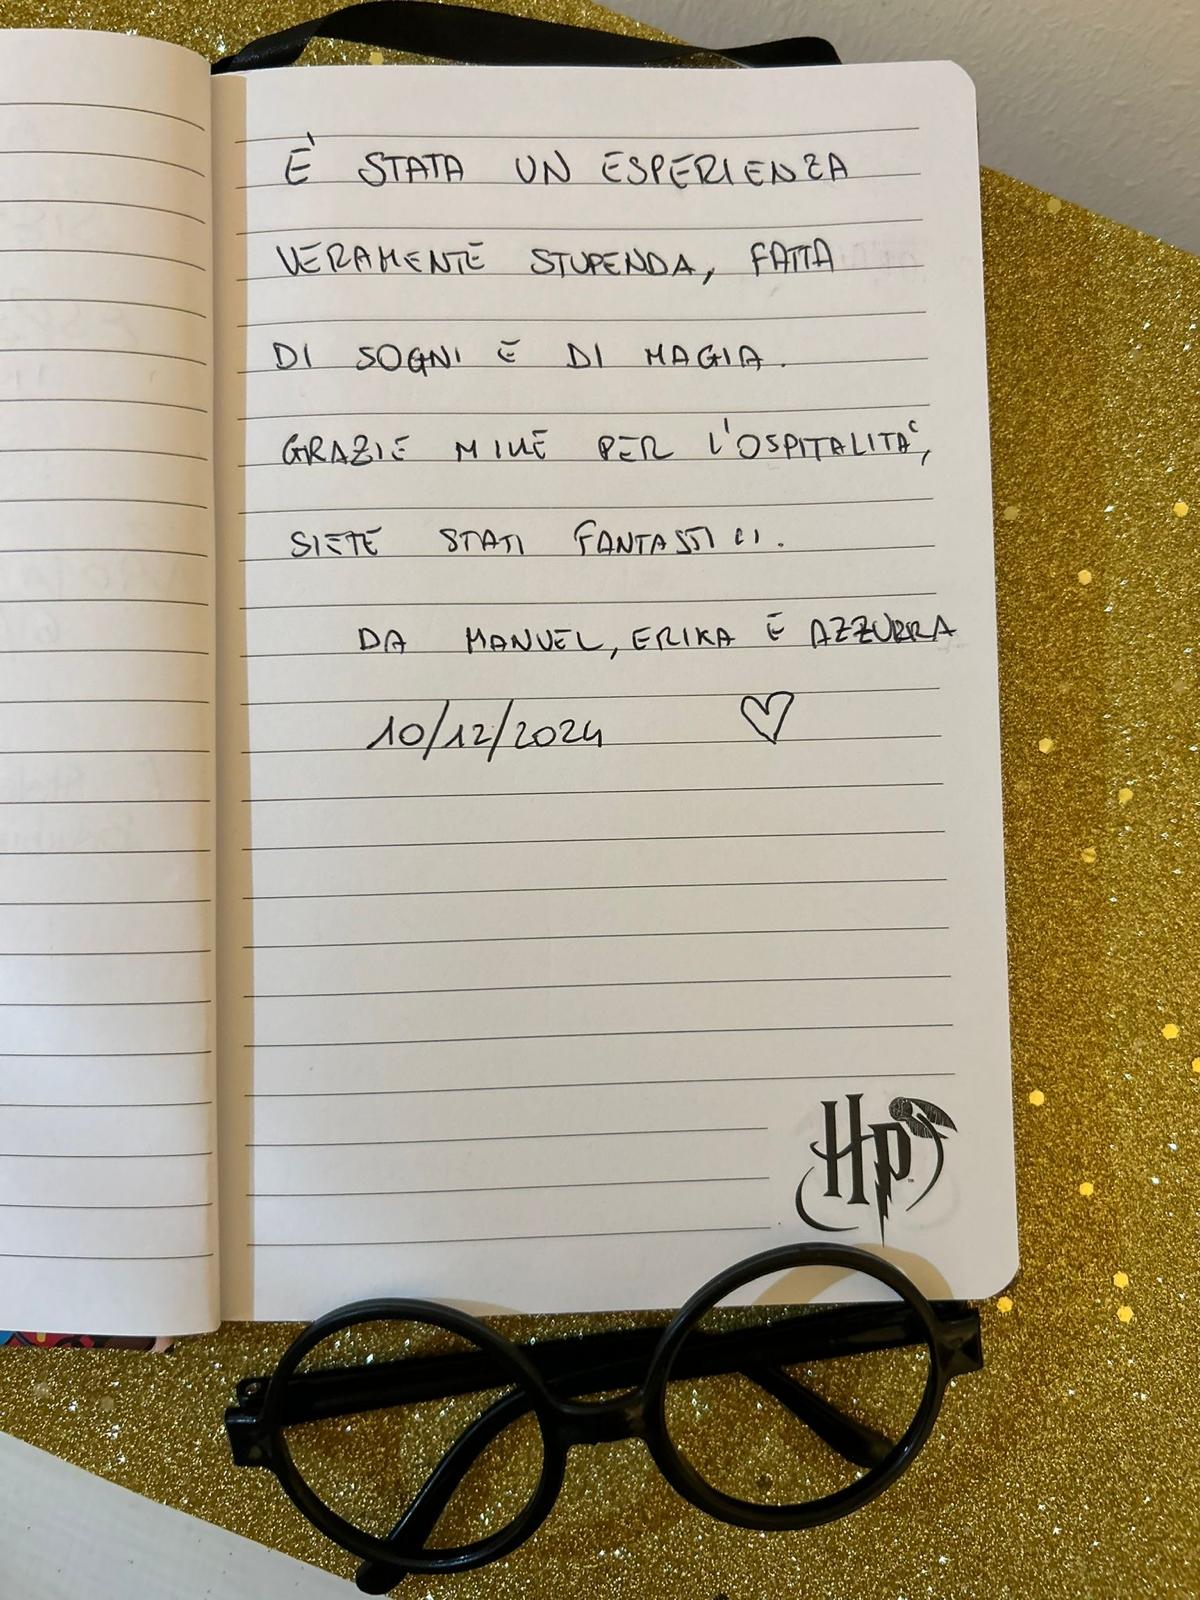 È STATA UN ESPERIENZA
VERAMENTE STUPENDA, FATTA
DI SOGNI E DI MAGIA.
GRAZIE MILLE PER L'OSPITALITA',
SIETE STATI FANTASTICI.
DA MANUEL, ERIKA E AZZURRA
10/12/2024 ♡
HP